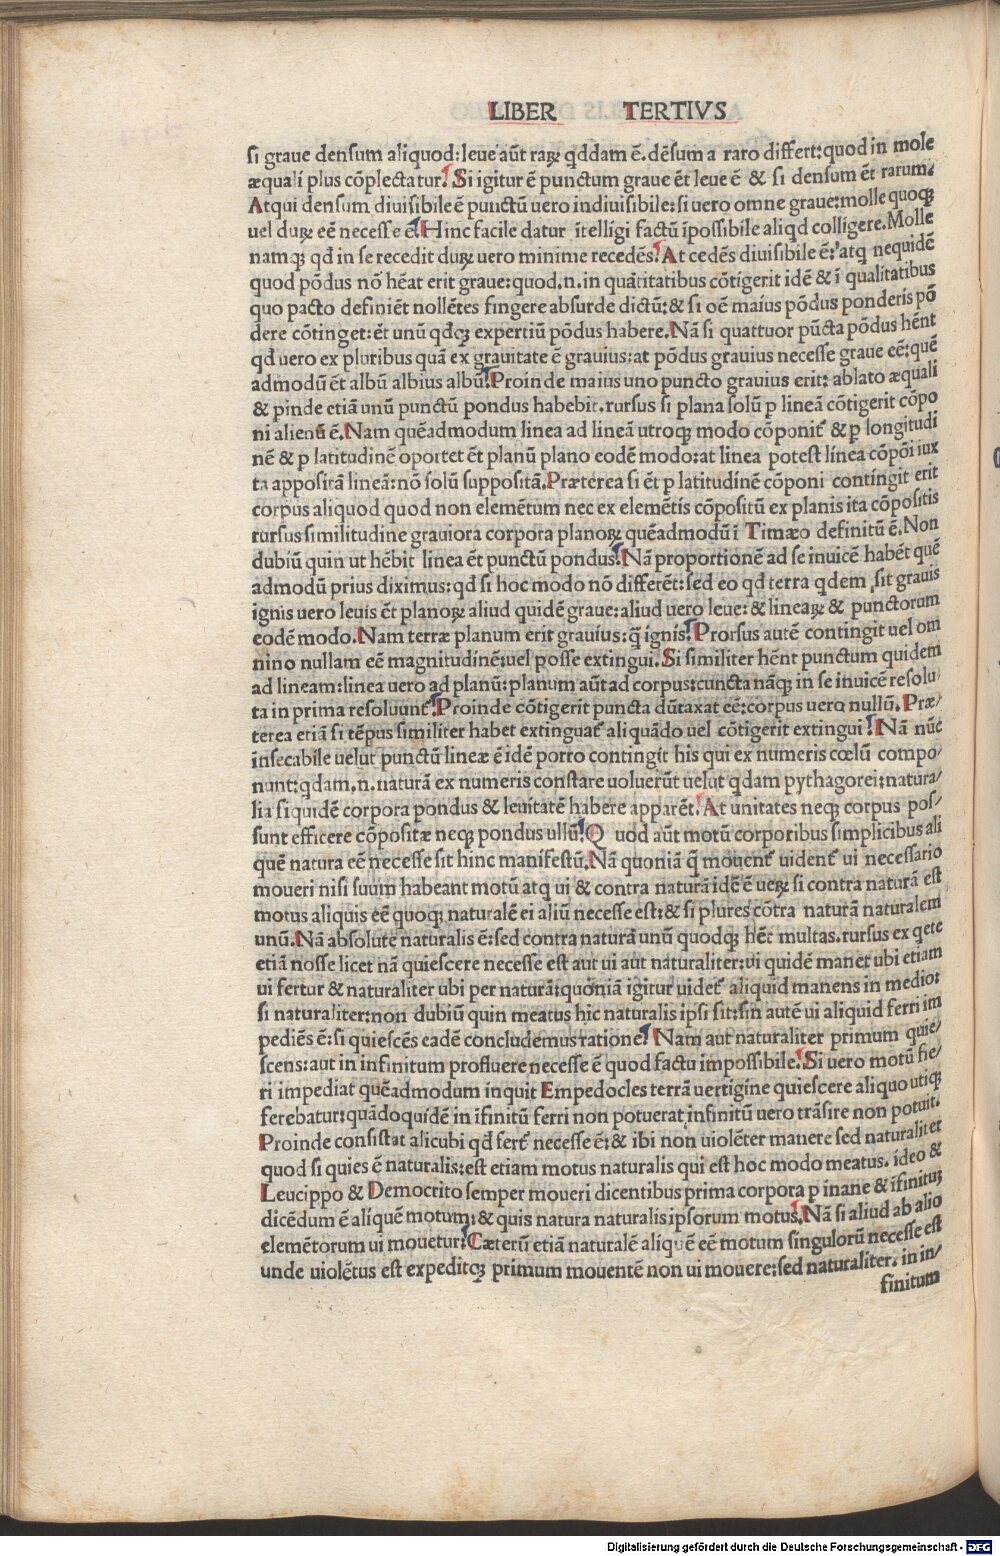 LIBER TERTIVS
si graue densum aliquod:leue aūt raꝝ qddam ē.dēsum a raro differt:quod in mole
æquali plus cōplectatur.Si igitur ē punctum graue ēt leue ē & si densum ēt rarum.
Atqui densum diuisibile ē punctū uero indiuisibile:si uero omne graue:molle quoqꝫ
uel duꝝ eē necesse ē.Hinc facile datur ītelligi factū īpossibile aliqd colligere.Molle
namqꝫ qd in se recedit duꝝ uero minime recedēs.At cedēs diuisibile ē:atq nequidē
quod pōdus nō hēat erit graue:quod.n.in quātitatibus cōtigerit idē & ī qualitatibus
quo pacto definiēt nollētes fingere absurde dictū:& si oē maius pōdus ponderis pō
dere cōtinget:ēt unū qdqꝫ expertiū pōdus habere.Nā si quattuor pūcta pōdus hēnt
qd uero ex pluribus quā ex grauitate ē grauius:at pōdus grauius necesse graue eē:quē
admodū ēt albū albius albū.Proinde maius uno puncto grauius erit: ablato æquali
& pinde etiā unū punctū pondus habebit.rursus si plana solū p lineā cōtigerit cōpo
ni alienū ē.Nam quēadmodum linea ad lineā utroqꝫ modo cōponit̄ & p longitudi
nē & p latitudinē oportet ēt planū plano eodē modo:at linea potest linea cōpōi iux
ta appositā lineā:nō solū suppositā.Præterea si ēt p latitudinē cōponi contingit erit
corpus aliquod quod non elemētum nec ex elemētis cōpositū ex planis ita cōpositis
rursus similitudine grauiora corpora planoꝝ quēadmodū ī Timæo definitū ē.Non
dubiū quin ut hēbit linea ēt punctū pondus.Nā proportionē ad se inuicē habēt quē
admodū prius diximus:qd si hoc modo nō differēt:sed eo qd terra qdem sit grauis
ignis uero leuis ēt planoꝝ aliud quidē graue:aliud uero leue:& lineaꝝ & punctorum
eodē modo.Nam terræ planum erit grauius:q̄ ignis.Prorsus autē contingit uel om
nino nullam eē magnitudinē:uel posse extingui.Si similiter hēnt punctum quidem
ad lineam:linea uero ad planū:planum aūt ad corpus:cuncta nāqꝫ in se inuicē resolu
ta in prima resoluunt̄.Proinde cōtigerit puncta dūtaxat eē:corpus uero nullū.Præ
terea etiā si tēpus similiter habet extinguat̄ aliquādo uel cōtigerit extingui.Nā nūc
īnsecabile uelut punctū lineæ ē idē porro contingit his qui ex numeris cœlū compo
nunt:qdam.n.naturā ex numeris constare uoluerūt uelut qdam pythagorei:natura
lia siquidē corpora pondus & leuitatē habere apparēt.At unitates neqꝫ corpus pos
sunt efficere cōpositæ neqꝫ pondus ullū.Quod aūt motū corporibus simplicibus ali
quē natura eē necesse sit hinc manifestū.Nā quoniā q̄ mouent̄ uident̄ ui necessario
moueri nisi suum habeant motū atq ui & contra naturā idē ē ueꝝ si contra naturā est
motus aliquis eē quoqꝫ naturalē ei aliū necesse est:& si plures cōtra naturā naturalem
unū.Nā absolute naturalis ē:sed contra naturā unū quodqꝫ hēt multas.rursus ex qete
etiā nosse licet nā quiescere necesse est aut ui aut naturaliter:ui quidē manet ubi etiam
ui fertur & naturaliter ubi per naturā:quoniā igitur uidet̄ aliquid manens in medio:
si naturaliter:non dubiū quin meatus hic naturalis ipsi sit:sin autē ui aliquid ferri im
pediēs ē:si quiescēs eadē concludemus ratione.Nam aut naturaliter primum quie
scens:aut in infinitum profluere necesse ē quod factu impossibile.Si uero motū fie
ri impediat quēadmodum inquit Empedocles terrā uertigine quiescere aliquo utiqꝫ
ferebatur:quādoquidē in īfinitū ferri non potuerat infinitū uero trāsire non potuit.
Proinde consistat alicubi qd fert̄ necesse ē:& ibi non uiolēter manere sed naturaliter
quod si quies ē naturalis:est etiam motus naturalis qui est hoc modo meatus.ideo &
Leucippo & Democrito semper moueri dicentibus prima corpora p inane & īfinituꝫ
dicēdum ē aliquē motum:& quis natura naturalis ipsorum motus.Nā si aliud ab alio
elemētorum ui mouetur.Cæterū etiā naturalē aliquē eē motum singulorū necesse est
unde uiolētus est expeditqꝫ primum mouentē non ui mouere:sed naturaliter.in in
finitum
Digitalisierung gefördert durch die Deutsche Forschungsgemeinschaft - DFG